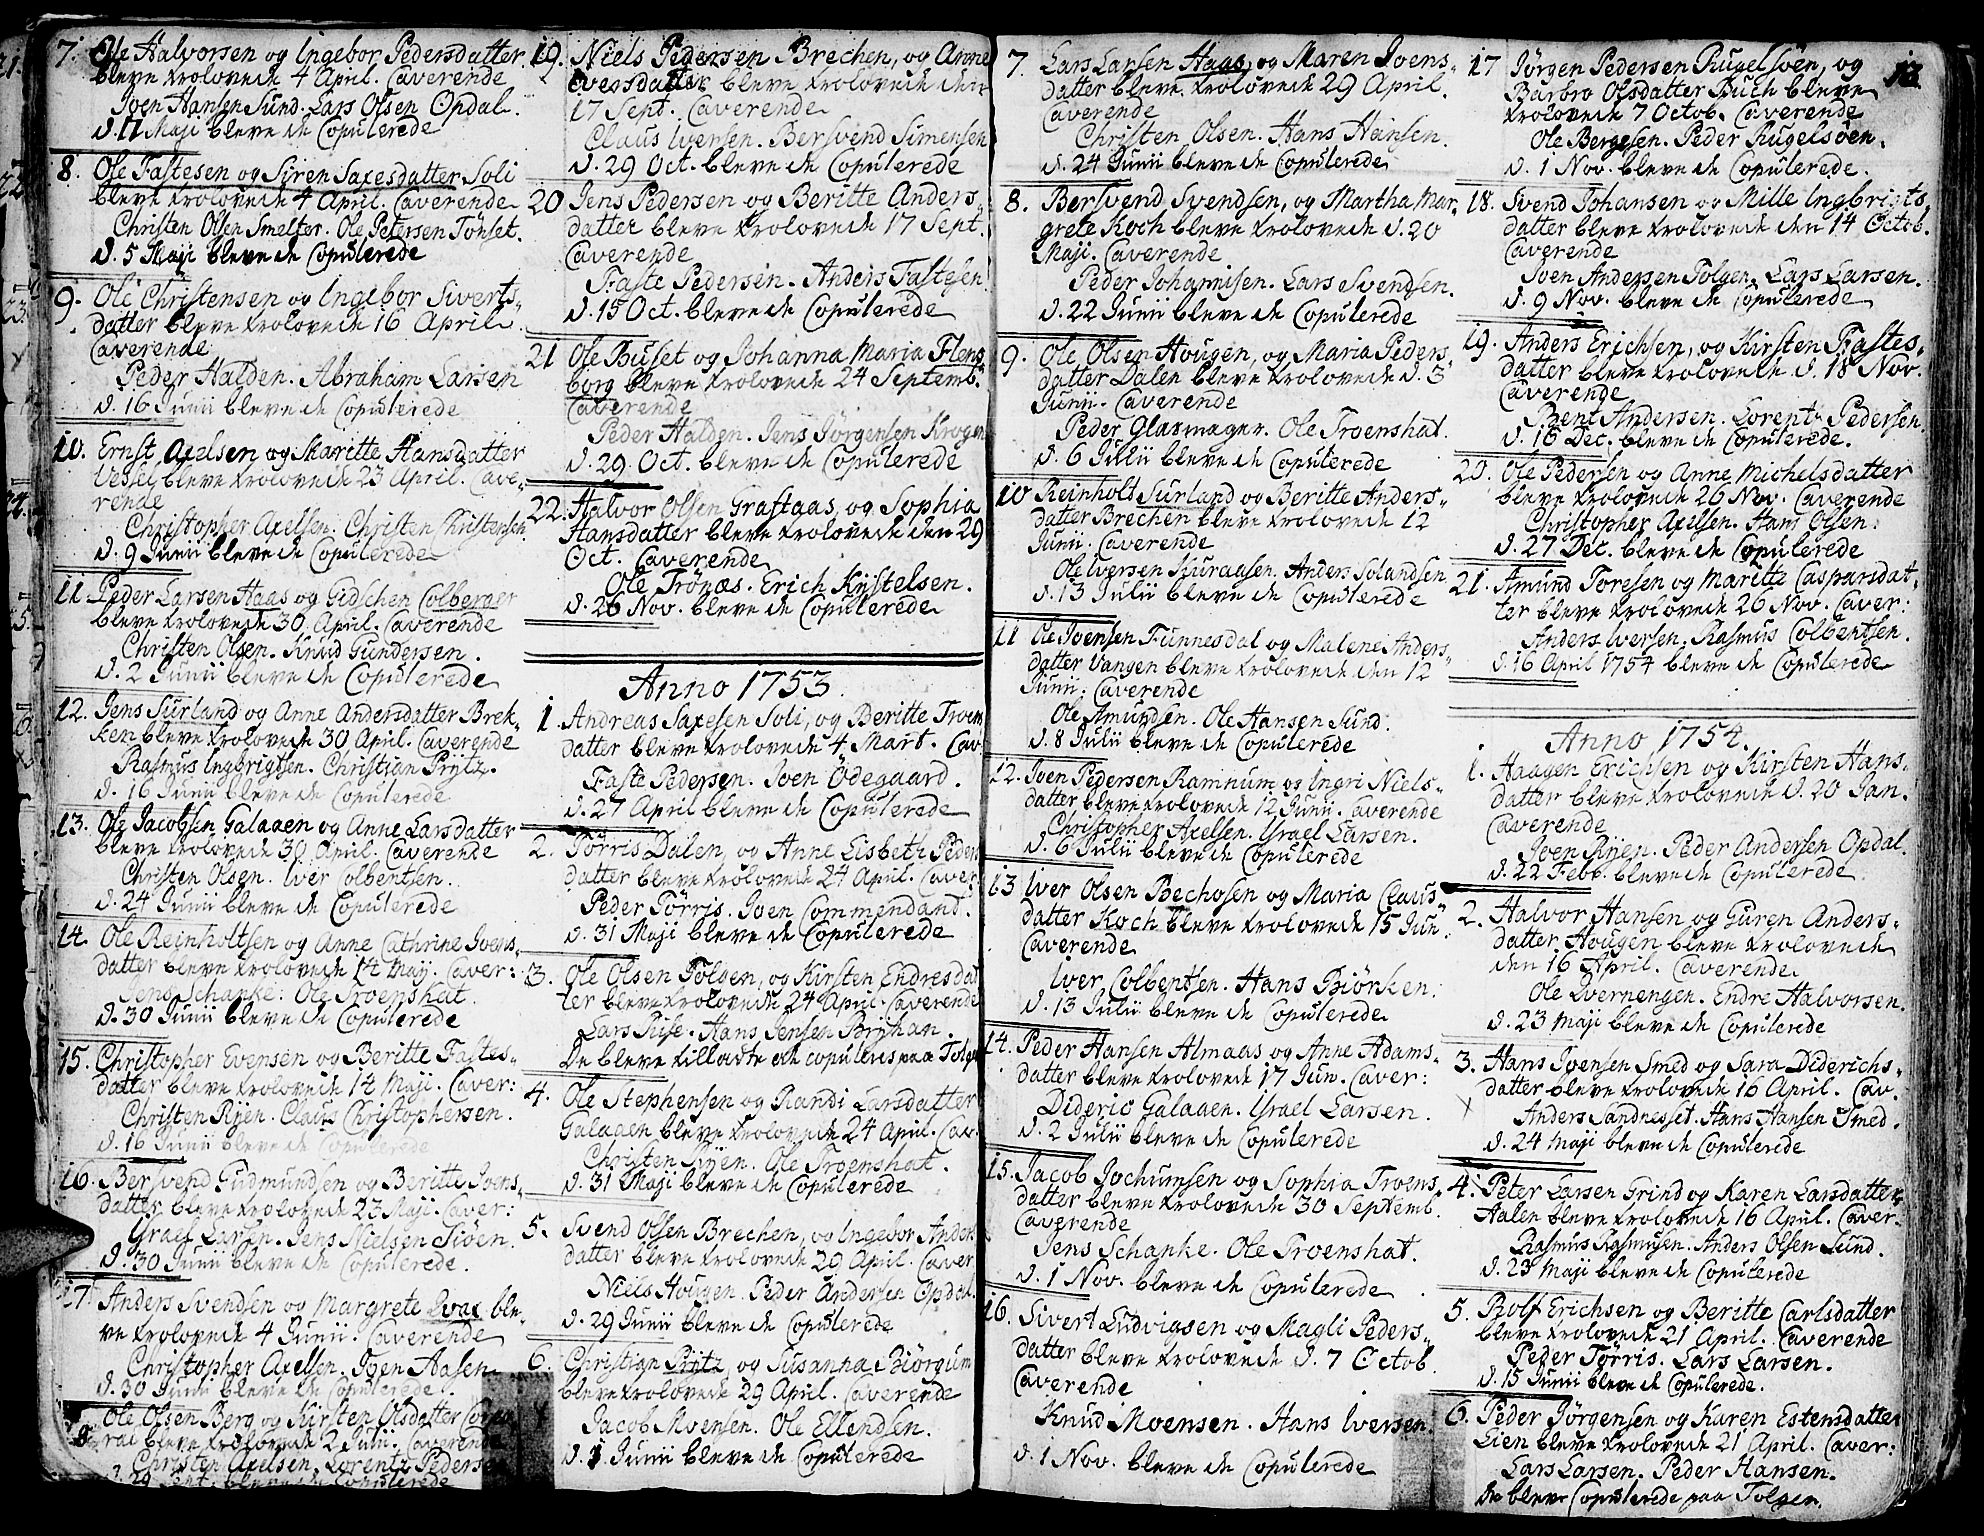 7. Ole Halvorsen og Ingebor Pedersdatter
bleve trolovede 4 April. Caverende
Joen Hansen Sund. Lars Olsen Opdal.
d. 17 Maji bleve de Copulerede
8. Ole Fastesen og Siren Saxesdatter Soli
bleve trolovede 4 April. Caverende
Christen Olsen Smelter. Ole Petersen Tönset.
d. 5 Maji bleve de Copulerede
9. Ole Christensen og Ingebor Siverts-
datter bleve trolovede 16 April.
Caverende
Peder Halden. Abraham Larsen
d. 16 Junii bleve de Copulerede
10. Ernst Axelsen og Maritte Hansdatter
Vessel bleve trolovede 23 April. Cave-
rende
Christopher Axelsen. Christen Christensen
d. 9 Junii bleve de Copulerede
11. Peder Larsen Haas og Gidschen Colberger
bleve trolovede 30 April. Caverende
Christen Olsen. Knud Gundersen.
d. 2 Junii bleve de Copulerede
12. Jens Surland og Anne Andersdatter Brek-
ken bleve trolovede 30 April. Caverende
Rasmus Ingbrigtsen. Christian Prytz.
d. 16 Junii bleve de Copulerede
13. Ole Jacobsen Galaaen og Anne Larsdatter
bleve trolovede 30 April. Caverende
Christen Olsen. Iver Colbentsen.
d. 24 Junii bleve de Copulerede
14. Ole Reinholtsen og Anne Cathrine Joens-
datter bleve trolovede 14 Maji. Caver:
Jens Schanke. Ole Troenshat.
d. 30 Junii bleve de Copulerede
15. Christopher Evensen og Beritte Fastes-
datter bleve trolovede 14 Maji. Caver:
Christen Rijen. Claus Christophersen.
d. 16 Junii bleve de Copulerede
16. Bersvend Gudmundsen og Beritte Joens-
datter bleve trolovede 23 Maji. Caver:
Israel Larsen. Jens Nielsen Siöen.
d. 30 Junii bleve de Copulerede.
17. Anders Svendsen og Margrete Qvas ble-
ve trolovede 4 Junii. Caverende
Christopher Axelsen. Joen Aasen
d. 30 Junii bleve de Copulerede.
Ole Olsen Berg og Kirsten Olsdatter
bleve trolovede 2 Julii. Caverende
Christen Axelsen. Lorentz Pedersen
d. 29 Sept. bleve de Copulerede
19. Niels Pedersen Brechen, og Anne
Evensdatter bleve trolovede den
17 Sept. Caverende
Claus Iversen. Bersvend Simensen
d. 29 Oct. bleve de Copulerede
20 Jens Pedersen og Beritte Anders-
datter bleve trolovede 17 Sept.
Caverende
Faste Pedersen. Anders Fastesen
d. 15 Oct. bleve de Copulerede
21 Ole Buset og Johanna Maria Flens-
borg bleve trolovede 24 Septemb.
Caverende
Peder Halden. Jens Jörgensen Krogen
d. 29 Oct. bleve de Copulerede
22. Halvor Olsen Graftaas, og Sophia
Hansdatter bleve trolovede den 29
Oct. Caverende
Ole Trönæs. Erich Kistelsen.
d. 26 Nov. bleve de Copulerede
Anno 1753.
1. Andreas Saxesen Soli, og Beritte Troens
datter bleve trolovede 4 Mart. Cav:
Faste Pedersen. Joen Ödegaard.
d. 27 April bleve de Copulerede
2. Törris Dalen, og Anne Lisbeth Peders
datter bleve trolovede 24 April. Caver:
Peder Törris. Joen Commendand.
d. 31 Maji bleve de Copulerede
3. Ole Olsen Tolgen, og Kirsten Endresdat
ter bleve trolovede 24 April. Caverende
Lars Riise. Hans Jensen Bryhan.
De bleve tilladte at copuleres paa Tolgen
4. Ole Stephensen og Randi Larsdatter
Galaaen bleve trolovede 24 April. Cav.
Christen Rijen. Ole Troenshat.
d. 31 Maji bleve de Copulerede
5. Svend Olsen Brechen, og Ingebor Anders
datter bleve trolovede 29 April. Caver
Niels Hougen. Peder Andersen Opdal.
d. 29 Junii bleve de Copulerede
6. Christian Pritz, og Susanna Biörgum
bleve trolovede 29 April. Caverende
Jacob Moensen. Ole Ellendsen.
d. 1 Junii bleve de Copulerede
7. Lars Larsen Haas, og Maren Joens-
datter bleve trolovede 29 April.
Caverende
Christen Olsen. Hans Hansen.
d. 24 Junii bleve de Copulerede
8. Bersvend Svendsen, og Martha Mar-
grete Koch bleve trolovede d. 20
Maji. Caverende
Peder Johannisen. Lars Svendsen.
d. 22 Junii bleve de Copulerede
9. Ole Olsen Hougen, og Maria Peders-
datter Dalen bleve trolovede d. 3
Junii. Caverende
Peder Glasmager. Ole Troenshat.
d. 6 Julii bleve de Copulerede
10 Reinholt Surland og Beritte Anders-
datter Brechen bleve trolovede 12
Junii. Caverende
Ole Iversen Suuraasen. Anders Solandsen
d. 13 Julii bleve de Copulerede
11 Ole Joensen Funnesdal og Malene Anders-
datter Vangen bleve trolovede den 12
Junii. Caverende
Ole Amundsen. Ole Hansen Sund.
d. 8 Julii bleve de Copulerede
12. Joen Pedersen Ramnum og Ingri Niels-
datter bleve trolovede 12 Junii. Caverende
Christopher Axelsen. Israel Larsen.
d. 6 Julii bleve de Copulerede
13 Iver Olsen Bechosen og Maria Claus-
datter Koch bleve trolovede 15 Jun.
Caverende
Iver Colbentsen. Hans Biörken.
d. 13 Julii bleve de Copulerede
14. Peder Hansen Almaas og Anne Adams-
datter bleve trolovede 17 Jun. Caver:
Dideric Galaaen. Israel Larsen.
d. 2 Julii bleve de Copulerede
15. Jacob Jochumsen og Sophia Troens-
datter bleve trolovede 30 Septemb.
Caverende
Jens Schanke. Ole Troenshat.
d. 1 Nov. bleve de Copulerede
16. Sivert Ludvigsen og Magli Peders-
datter bleve trolovede d. 7 Octob.
Caverende
Knud Moensen. Hans Iversen
d. 1 Nov. bleve de Copulerede
17 Jörgen Pedersen Rugelsöen, og
Barbro Olsdatter Buch bleve
trolovede 7 Octob. Caverende
Ole Bergesen. Peder Rugelsöen.
d. 1 Nov. bleve de Copulerede.
18. Svend Johansen og Mille Ingbrigts-
datter bleve trolovede den 14 Octob.
Caverende
Joen Andersen Tolgen. Lars Larsen.
d. 9 Nov. bleve de Copulerede
19. Anders Erichsen, og Kirsten Fastes-
datter bleve trolovede d. 18 Nov.
Caverende
Bent Andersen. Lorentz Pedersen
d. 16 Dec. bleve de Copulerede.
20. Ole Pedersen og Anne Michelsdatter
bleve trolovede 26 Nov. Caverende
Christopher Axelsen. Hans Olsen.
d. 27 Dec. bleve de Copulerede
21. Amund Toresen og Maritte Caspersdat-
ter bleve trolovede 26 Nov. Caver:
Anders Iversen. Rasmus Colbentsen.
d. 16 April 1754 bleve de Copulerede
Anno 1754.
1. Haagen Erichsen og Kirsten Hans-
datter bleve trolovede d. 20 Jan.
Caverende
Joen Rijen. Peder Andersen Opdal.
d. 22 Febr. bleve de Copulerede
2. Halvor Hansen og Guren Anders-
datter Hougen bleve trolovede
den 16 April. Caverende
Ole Qvernengen. Endre Halvorsen.
d. 23 Maji bleve de Copulerede
3. Hans Joensen Smed og Sara Diderichs-
datter bleve trolovede 16 April. Cav.
Anders Sandnesset. Hans Hansen Smed.
d. 24 Maji bleve de Copulerede
4. Peter Larsen Grind og Karen Larsdatter
Aalen bleve trolovede 16 April. Caver.
Rasmus Rasmusen. Anders Olsen Sund.
d. 23 Maji bleve de Copulerede
5. Rolf Erichsen og Beritte Carlsdatter
bleve trolovede 21 April. Caverende
Peder Törris. Lars Larsen.
d. 15 Junii bleve de Copulerede.
6. Peder Jörgensen og Karen Estensdatter
Lien bleve trolovede 21 April. Caver:
Lars Larsen. Peder Hansen.
De bleve Copulerede paa Tolgen.